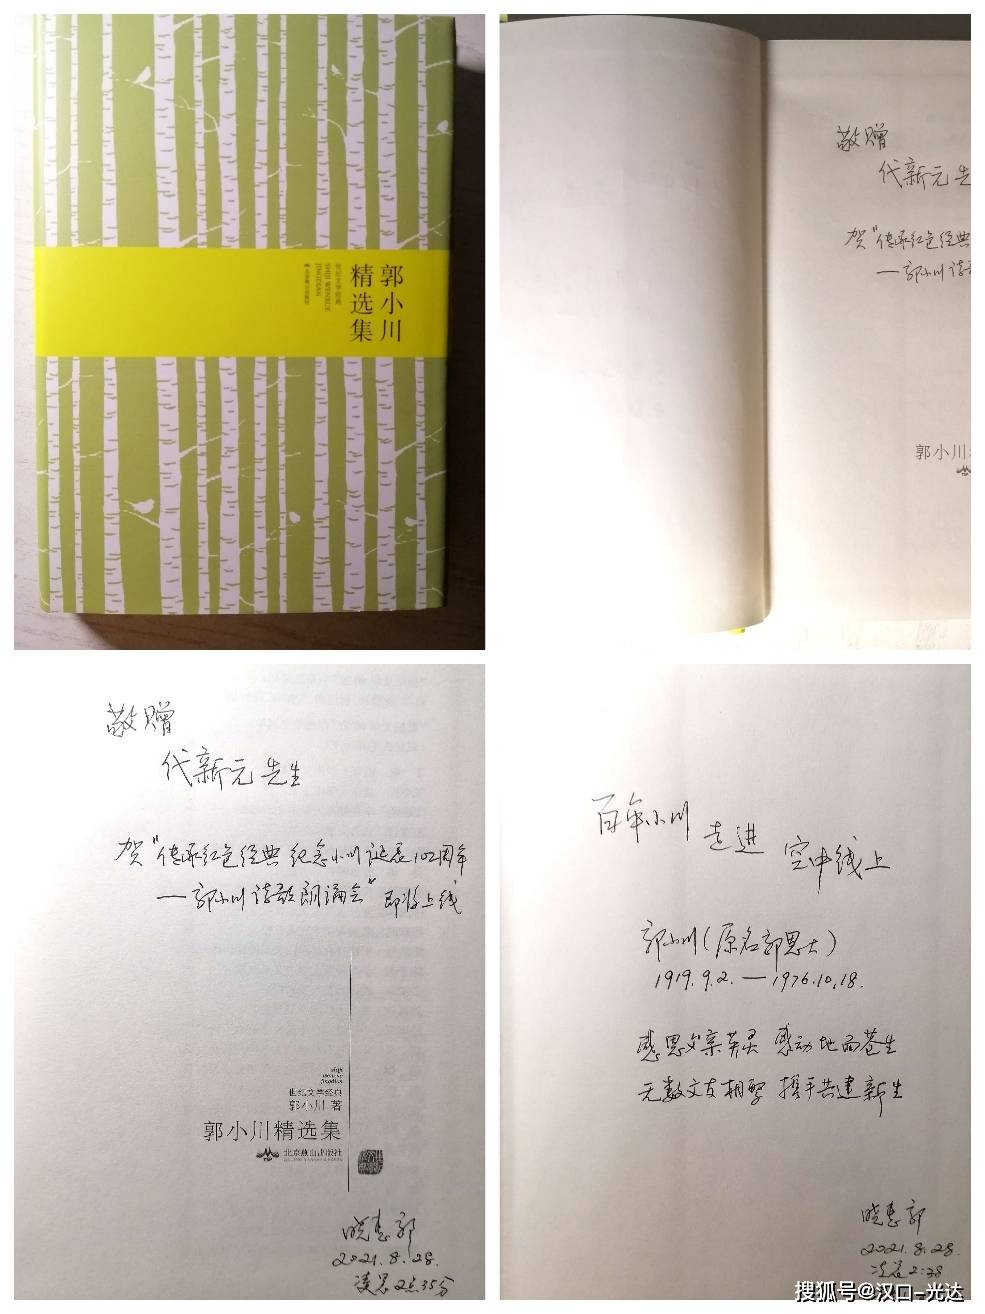 郭小川
精选集
世纪文学经典
SHIJI WENXUE
JINGDIAN
北京燕山出版社
敬赠
代新元先
贺“传承红色经典
—郭小川诗歌
郭小川
敬赠
代新元先生
贺“传承红色经典 纪念小川诞辰102周年
—郭小川诗歌朗诵会”即将上线
shiji
wenxue
jingdian
世纪文学经典
郭小川 著
郭小川精选集
北京燕山出版社
晓惠 郭
2021.8.28.
凌晨2点35分
百年小川 走进 空中线上
郭小川(原名郭恩大)
1919.9.2.—1976.10.18.
感恩父亲英灵 感动地而苍生
无数文友相聚 携手共建新生
晓惠 郭
2021.8.28.
凌晨2:38
搜狐号@汉口-光达